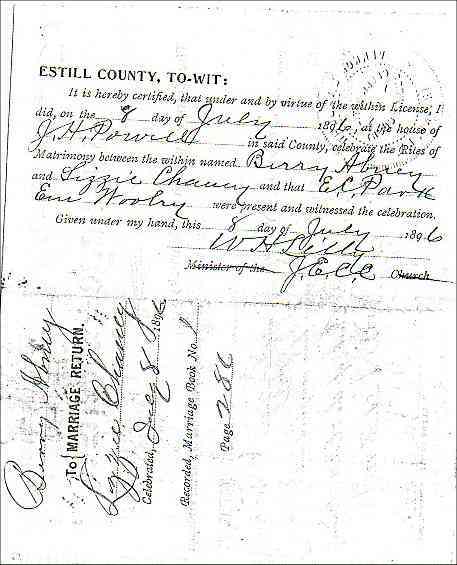 ESTILL COUNTY, TO-WIT:
It is hereby certified, that under and by virtue of the within License, I
did, on the 8 day of July 1896, at the house of
J. H. Powell in said County, celebrate the Rites of
Matrimony between the within named Birry Abney
and Lizzie Chaney and that E. C. Park
Em Woolry were present and witnessed the celebration.
Given under my hand, this 8 day of July 1896
W H Lilly
Minister of the J.E.C.C. Church
Birry Abney
To MARRIAGE RETURN.
Lizzie Chaney
Celebrated, July 8 1896
Recorded, Marriage Book No.
Page 286